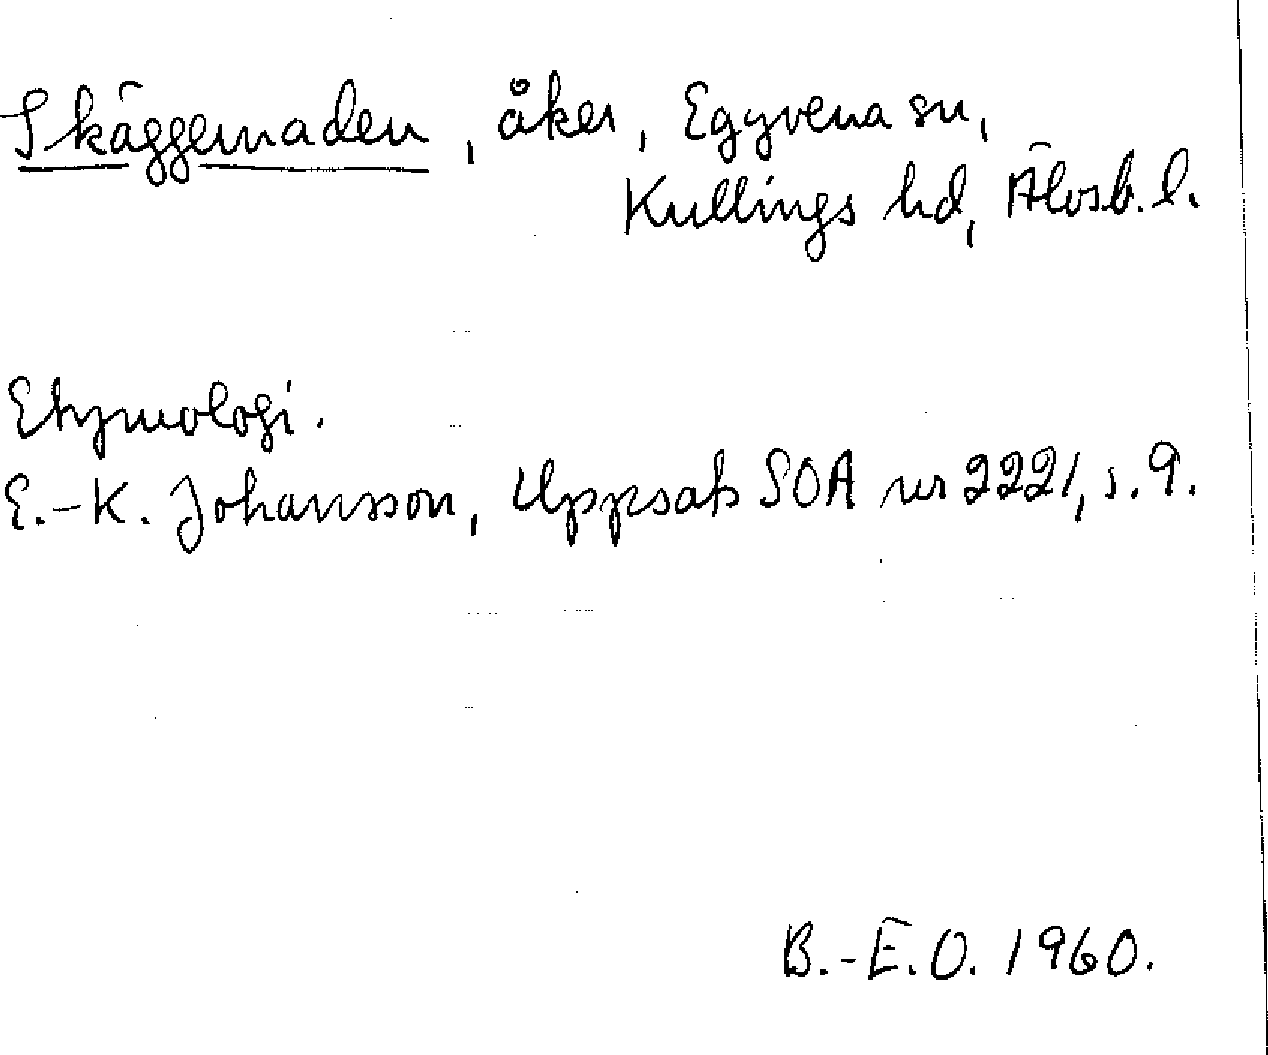 Skäggemaden, åker, Eggvena sn,
Kullings hd, Älvsb. l.
Etymologi.
E.-K. Johansson, Uppsats SOA nr 2221, s. 9.
B.-E.O. 1960.